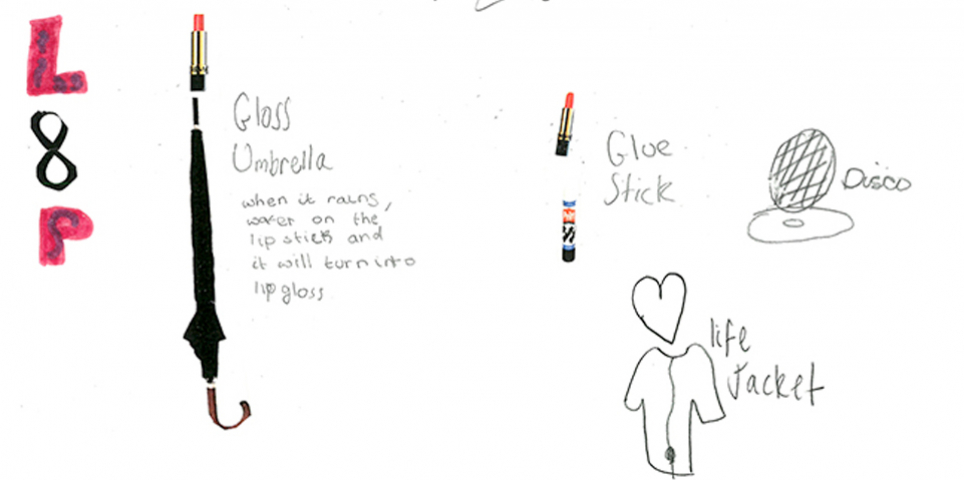 L
8
P
Gloss
Umbrella
when it rains,
water on the
lip stick and
it will turn into
lip gloss
Glue
Stick
Disco
life
Jacket